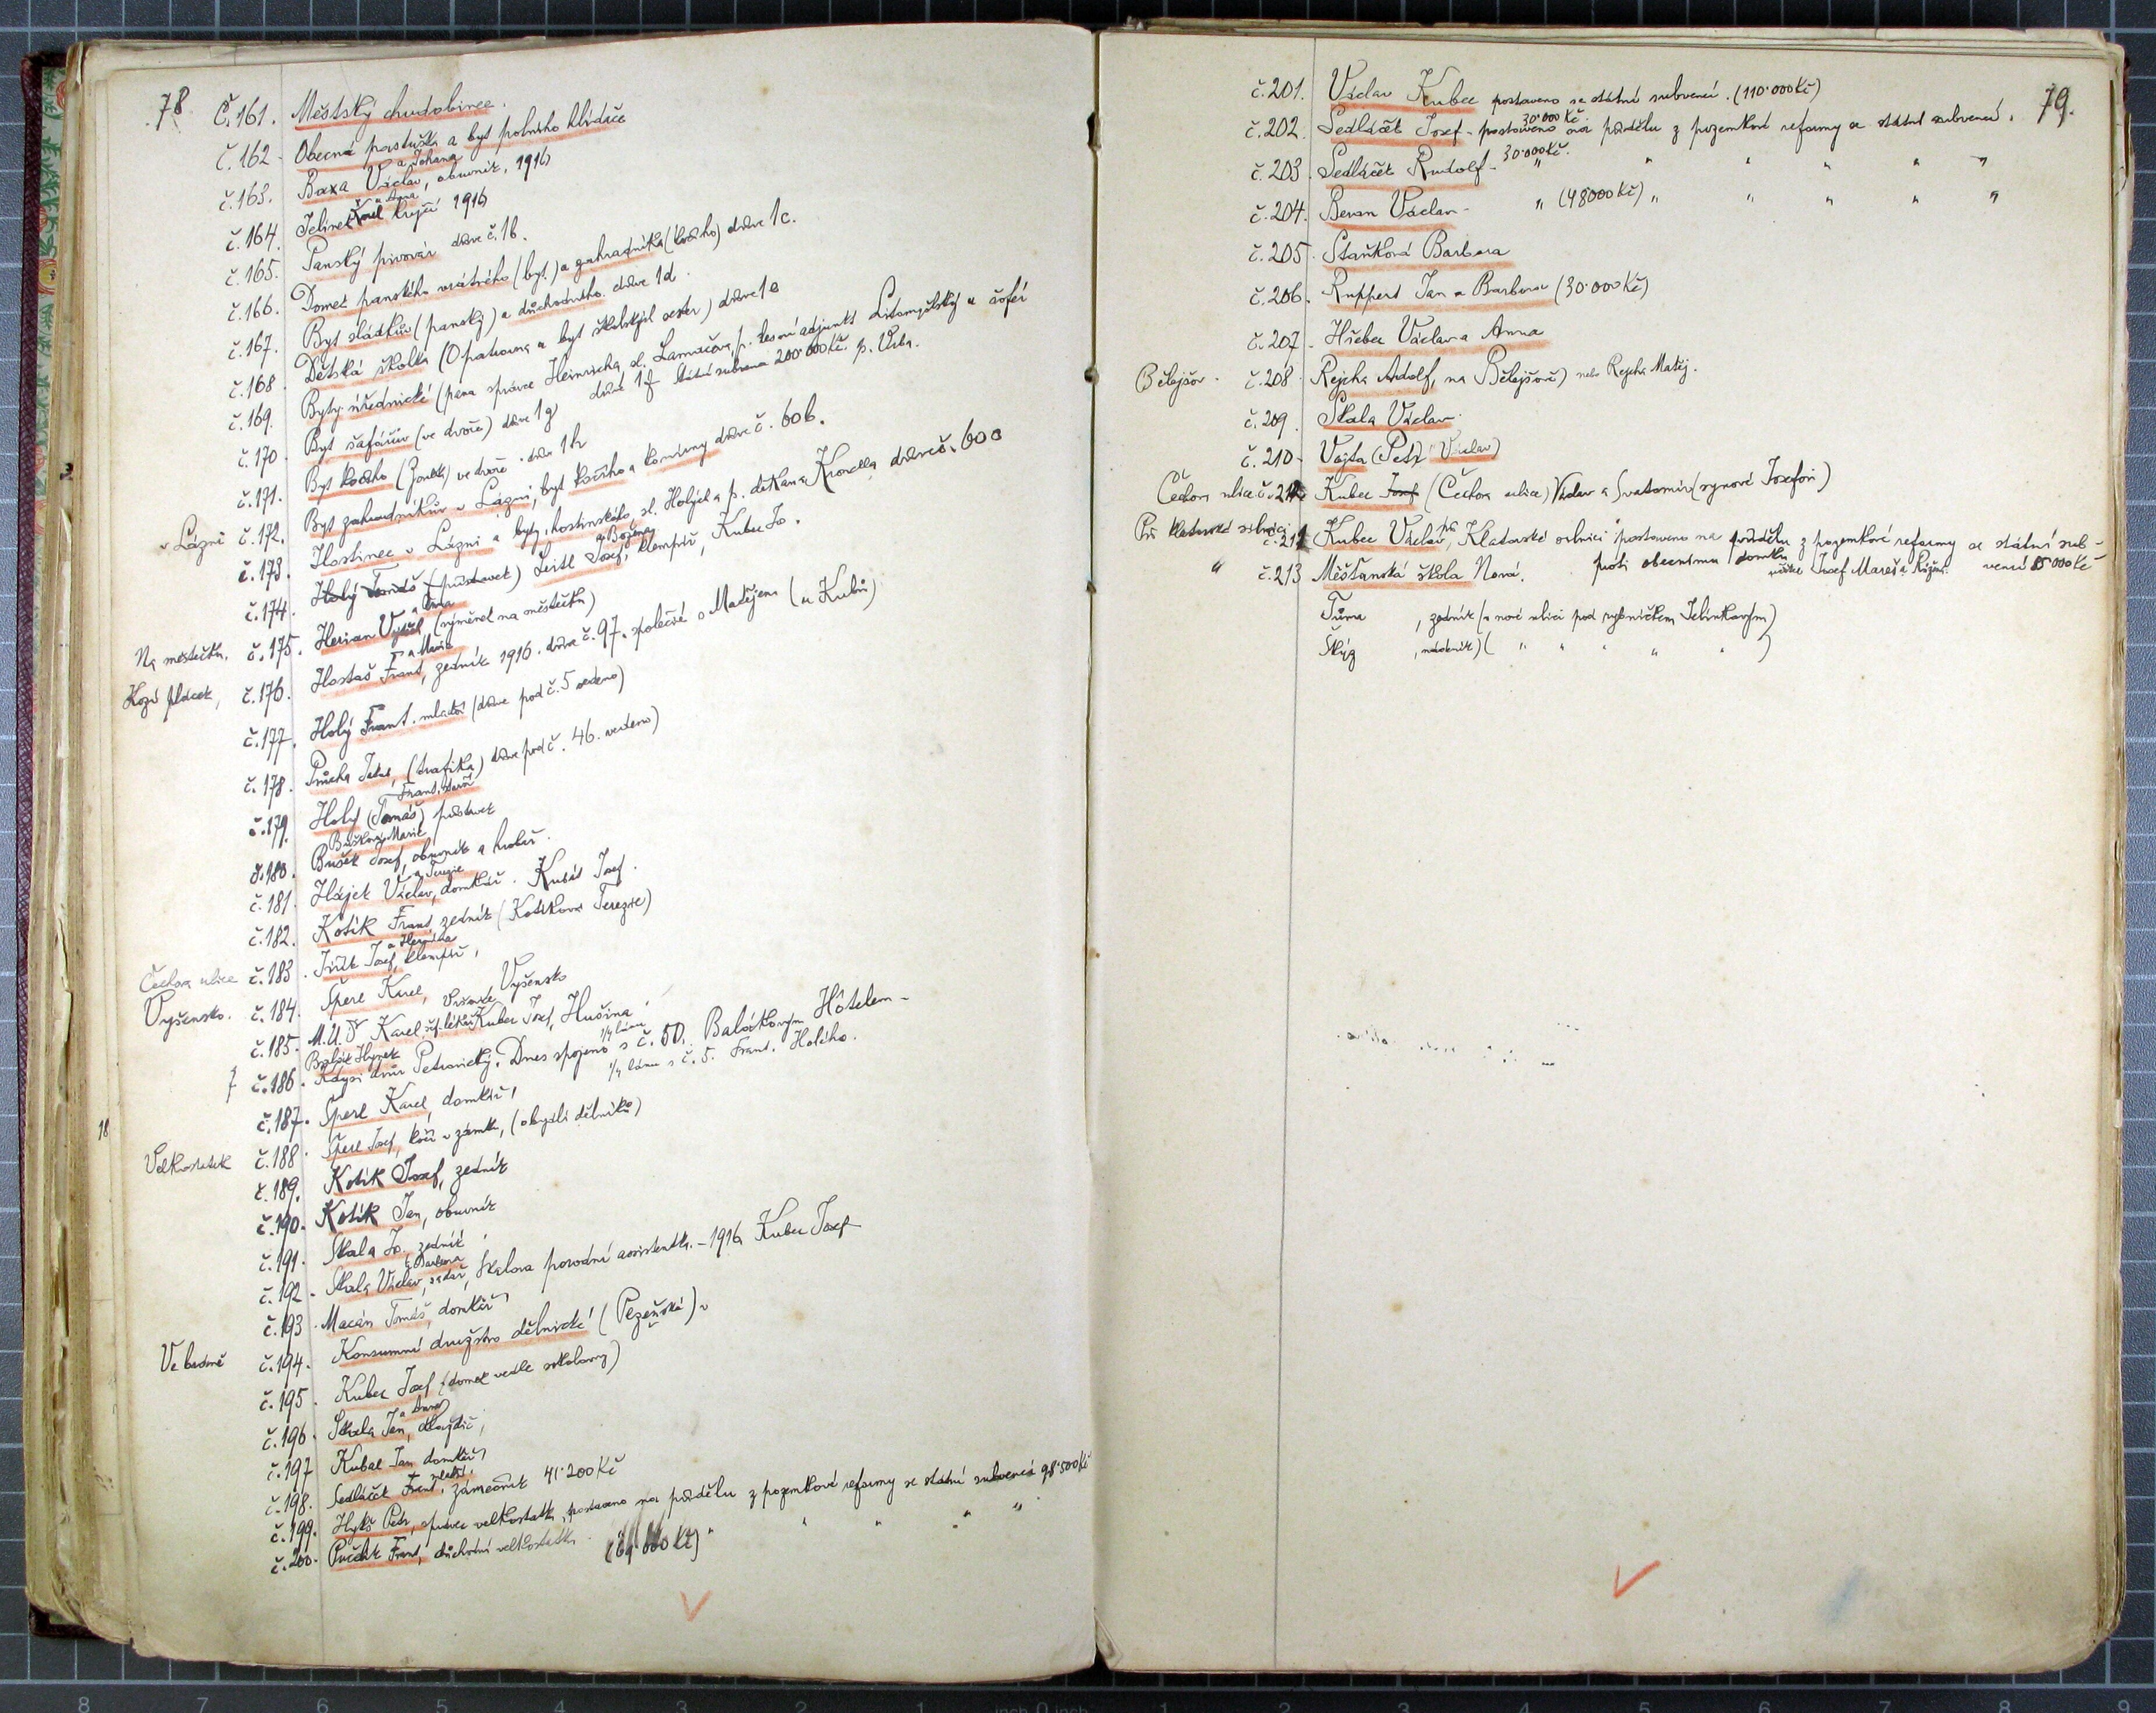 78
Č. 161. Městský chudobinec.
č. 162 Obecná pastuška a byt polního hlídače
č. 163. Baxa Václav, a Johana obuvník, 1916
č. 164. Jelínek Karel a Anna krejčí 1916
č. 165. Panský pivovár dříve č. 1b.
č. 166. Domek panského vrátného (byt.) a zahradníka (kočího) dříve 1c.
č. 167. Byt sládkův (panský) a důchodního dříve 1d.
č. 168 Dětská školka (Opatrovna a byt školských sester) dříve 1e
č. 169. Byty úřednické (pana správce Heinricha, sl. p. lesní adjunkt Litomyšlský a šofér
č. 170 Byt šafářův (ve dvoře) dříve 1g dříve 1f státní subvence 200·000 Kč. p.
č. 171. Byt kočího ve dvoře dříve 1h
v Lázni č. 172. Byt zahradníkův v Lázni, byt kočího a komíny dříve č. 60b.
č. 173. Hostinec v Lázni a byty, hostinského, sl. Holých a p. děkana Kronella dříve č. 60c
č. 174. Holý Tomáš (přístavek) Leitl Josef, a Boženy klempíř, Kubec Jo.
Na městečku. č. 175. Herian Vojtěch a Anna (výměnek na městečku)
Kozí plácek, č. 176. Hostaš Frant, a Marie zedník 1916. dříve č. 97. společně s Matějem (u Kubů)
č. 177. Holý Frant. mladší (dříve pod č. 5 vedeno)
č. 178. Průcha Jakub, (trafika) dříve pod č. 46. vedeno)
č. 179. Holý (Tomáš) Frant. starší přístavek
č. 180. Bušek Josef, Bušková Marie obuvník a hrobař.
č. 181. Hájek Václav, a Terezie domkář. Kubát Josef.
č. 182. Kotík Frant, zedník (Kotíková Terezie)
Čechova ulice č. 183. Jiřík Josef, a Hermína klempíř,
Vyšensko. č. 184. Šperl Karel, Vyšensko
č. 185. M.U.Dr Karel, Kubec Josef, Hušina
č. 186. Balák Hynek Kdysi dvůr Petrovický. Dnes spojeno 1/4 lánu s č. 50. Balákovým Hôtelem -
1/4 lánu s č. 5. Frant. Holého.
č. 187. Šperl Karel, domkář,
Velkostatek č. 188. Šperl Josef, kočí v zámku, (obydlí dělníků)
č. 189. Kotík Josef, zedník
č. 190. Kotík Jan, obuvník
č. 191. Skala Jo., zedník
č. 192. Skala Václav, a Barbora sadař, Skalova porodní assistentka. - 1916 Kubec Josef
č. 193. Macán Tomáš, domkář
č. 194. Konsumní družstvo dělnické (Plzeňské)
č. 195. Kubec Josef (domek vedle sokolovny)
č. 196. Skala Jan, a Anna dlaždič,
č. 197 Kubal Jan domkář
č. 198. Sedláček Frant. mladší. zámečník 41·200 Kč
č. 199. Hykš Petr, správce velkostatku, postaveno na přídělu z pozemkové reformy se státní subvencí 98·500 Kč
č. 200. Frant, důchodní velkostatku " " " " "
79.
č. 201. Václav Kubec postaveno se státní subvencí. (110·000 Kč)
č. 202. Sedláček Josef - 30·000 Kč. postaveno na přídělu z pozemkové reformy se státní subvencí.
č. 203. Sedláček Rudolf - 30·000 Kč. " " " " " "
č. 204. Beran Václav - " (48000 Kč) " " " " "
č. 205. Staňková Barbora
č. 206. Ruppert Jan a Barbora (30·000 Kč)
č. 207. Hřebec Václav a Anna
Bělejšov. č. 208. Rejcha Adolf, na Bělejšově) nebo Rejcha Matěj.
č. 209. Skala Václav.
č. 210. Vojta (Petr) Václav)
Čechova ulice č. 211. Kubec Josef (Čechova ulice) Václav a Svatomír (synové Josefovi)
Při klatovské silnici č. 212 Kubec Václav "na Klatovské silnici" postaveno na přídělu z pozemkové reformy se státní sub-
vencí 15 000 Kč
" č. 213 Měšťanská škola Nová. proti obecnímu domku učitel Josef Mareš a Růžena.
Tůma , zedník (v nové ulici pod rybníčkem Jelínkovým)
Škýz , nádeník) ( " " " " " )